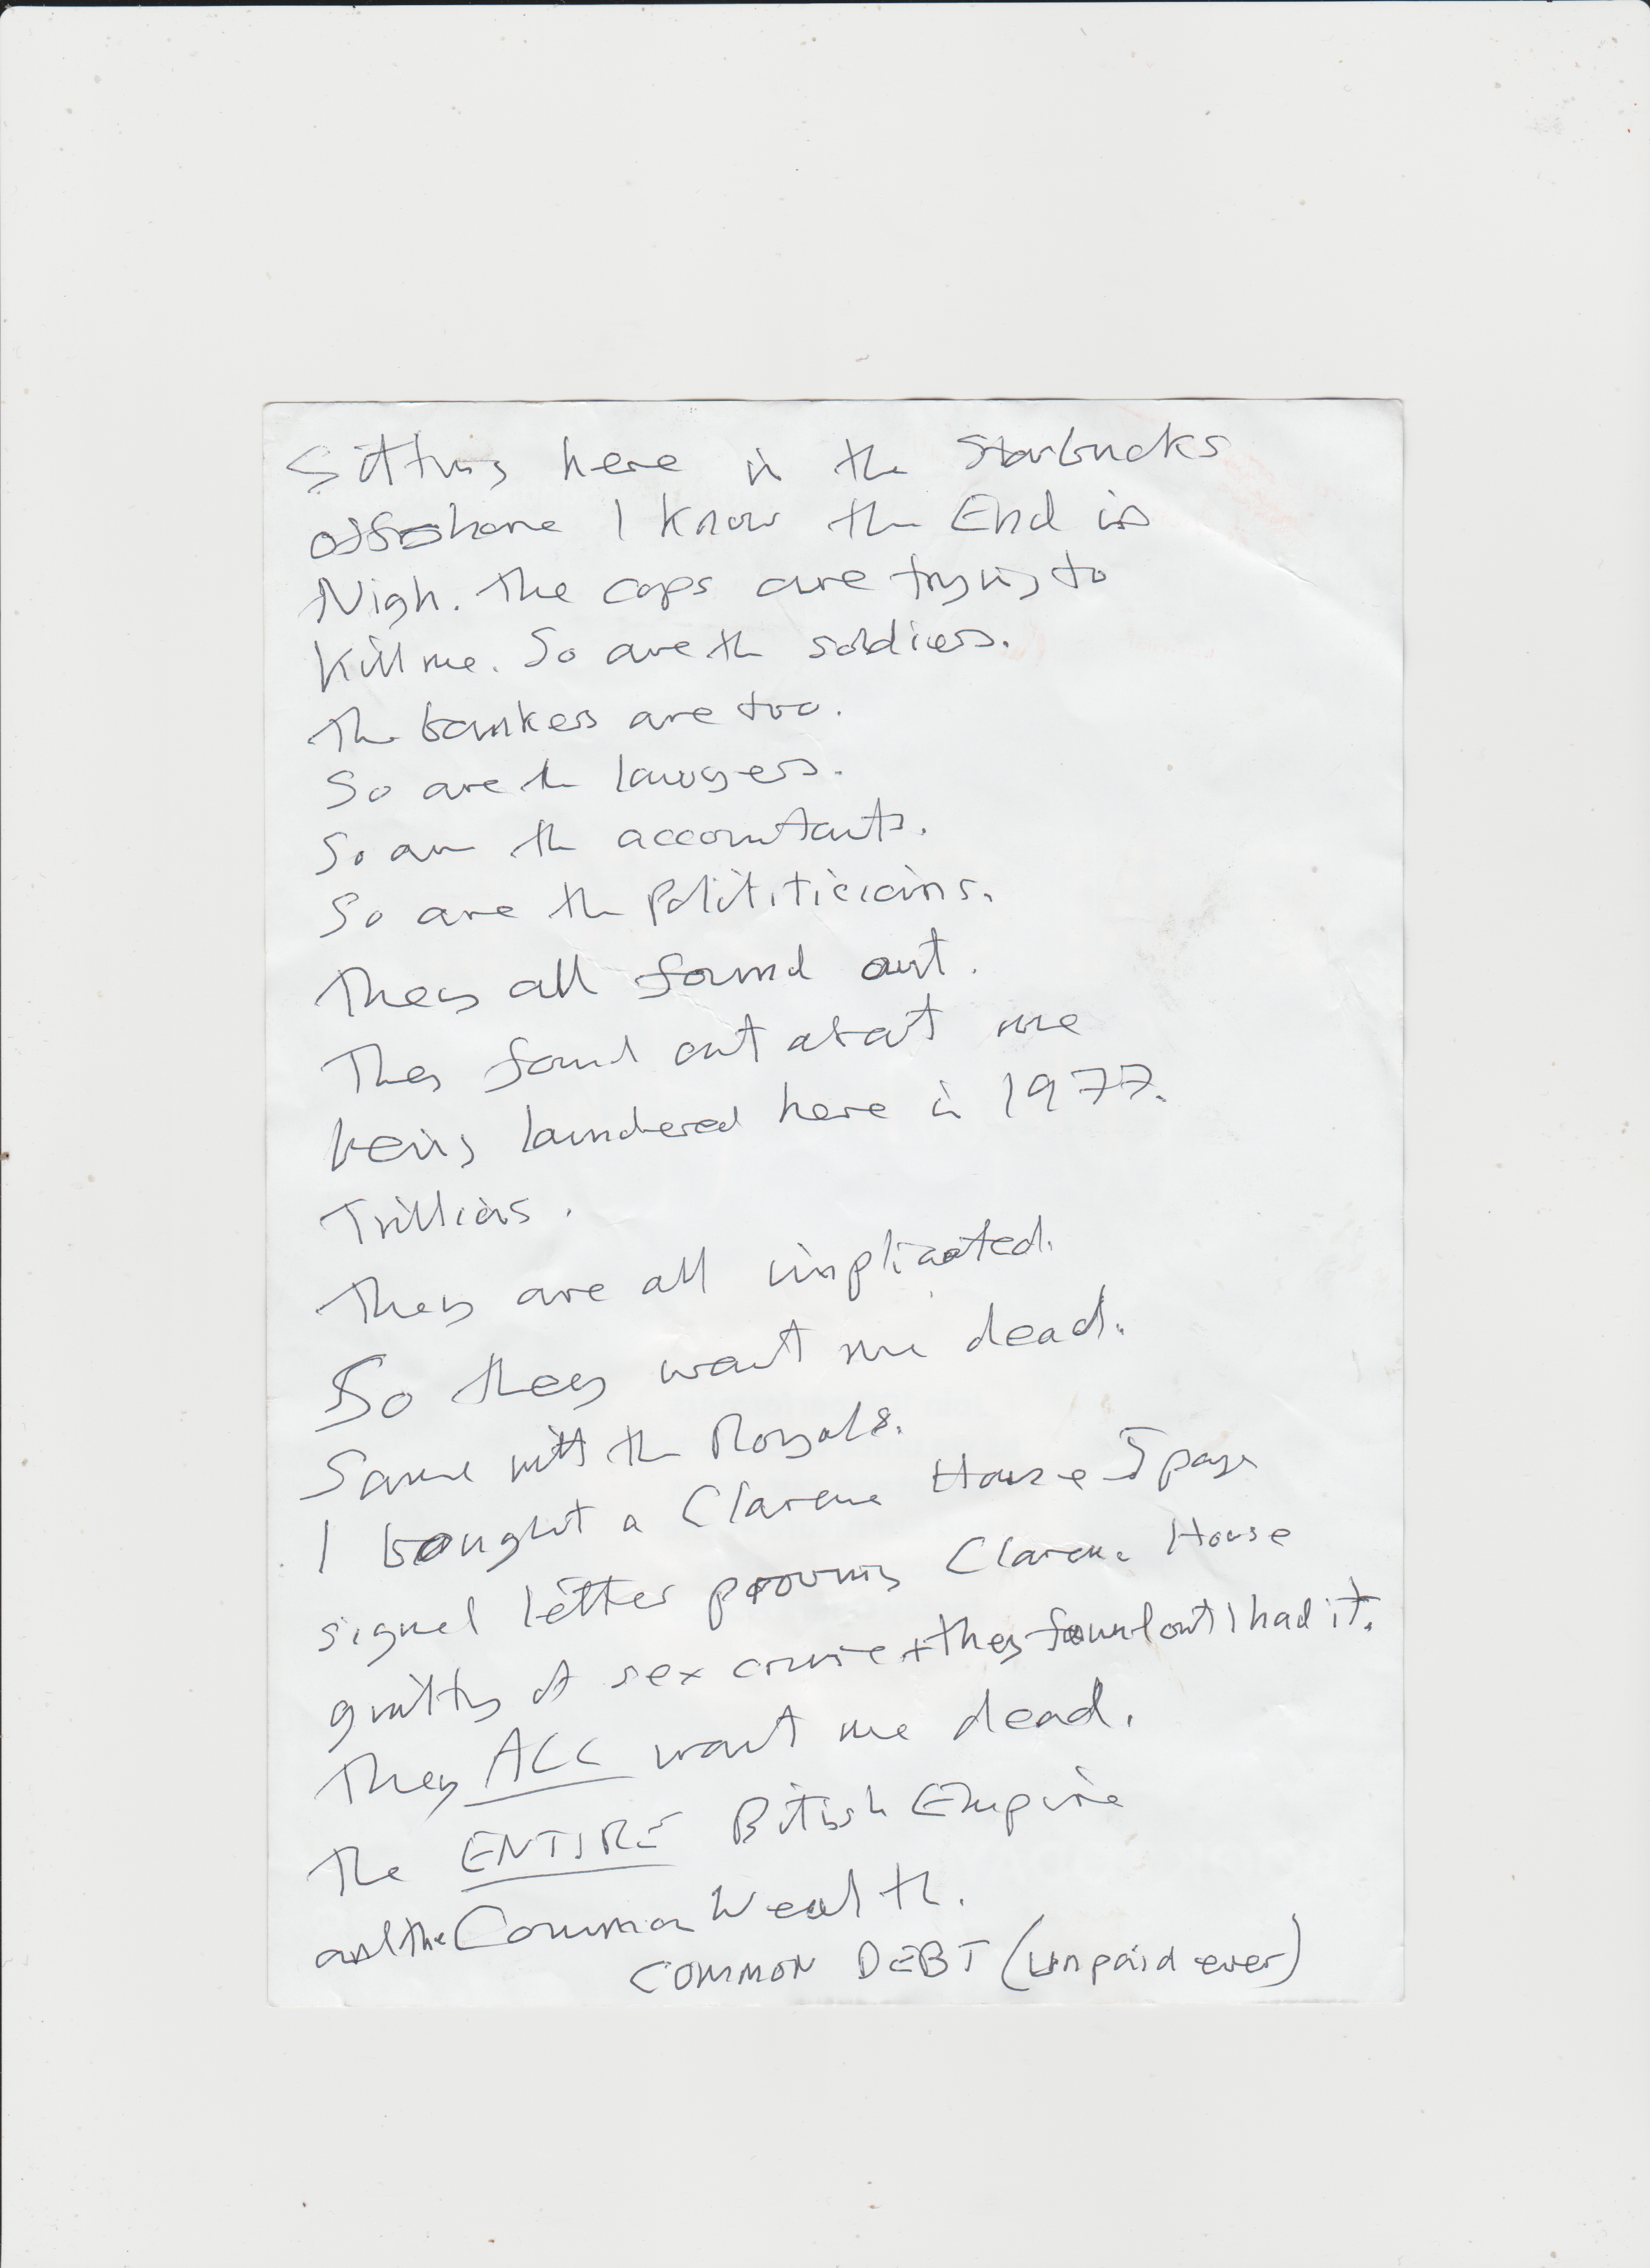 Sitting here in the Starbucks
offshore I know the End is
Nigh. The cops are trying to
kill me. So are the soldiers.
The bankers are too.
So are the lawyers.
So are the accountants.
So are the Polititicians.
They all found out.
They found out about me
being laundered here in 1977.
Trillions.
They are all implicated.
So they want me dead.
Same with the Royals.
I bought a Clarence House 5 page
signed letter proving Clarence House
guilty of sex crime + they found out I had it.
They ALL want me dead.
The ENTIRE British Empire
and the CommonWealth.
COMMON DEBT (unpaid ever)